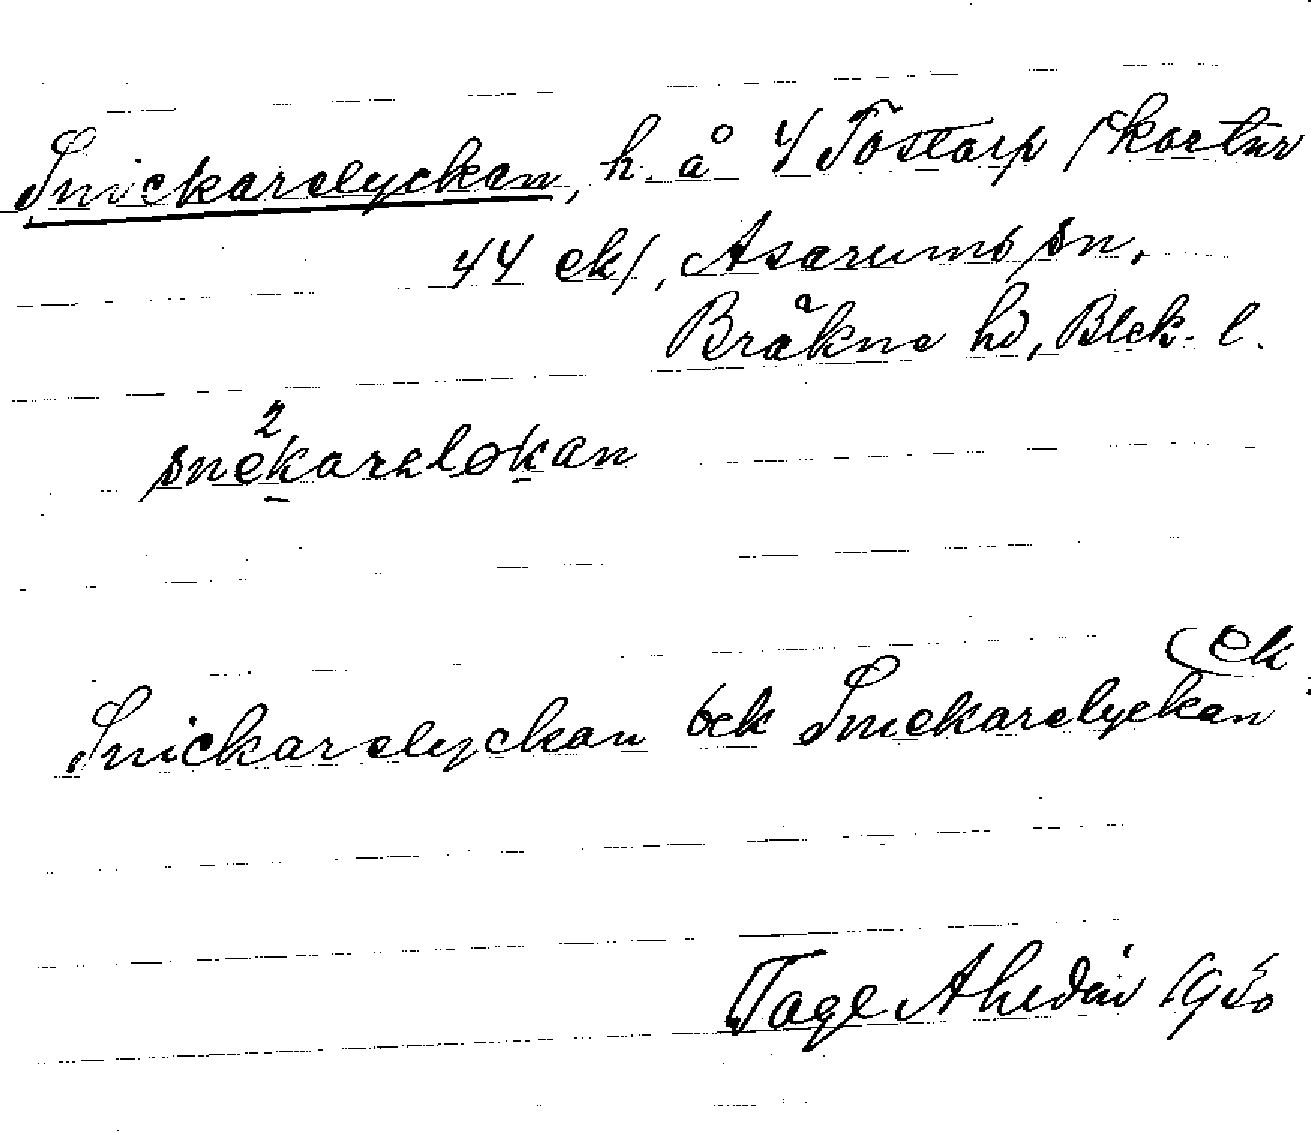 Snickarelyckan, h. å 4 Tostarp /kartür
44 ek/, Asarums sn,
Bräkne hd, Blek. l.
snekareløkan
ek
Snickarelyckan bek Snickarelyckan
Tage Ahldén 1950